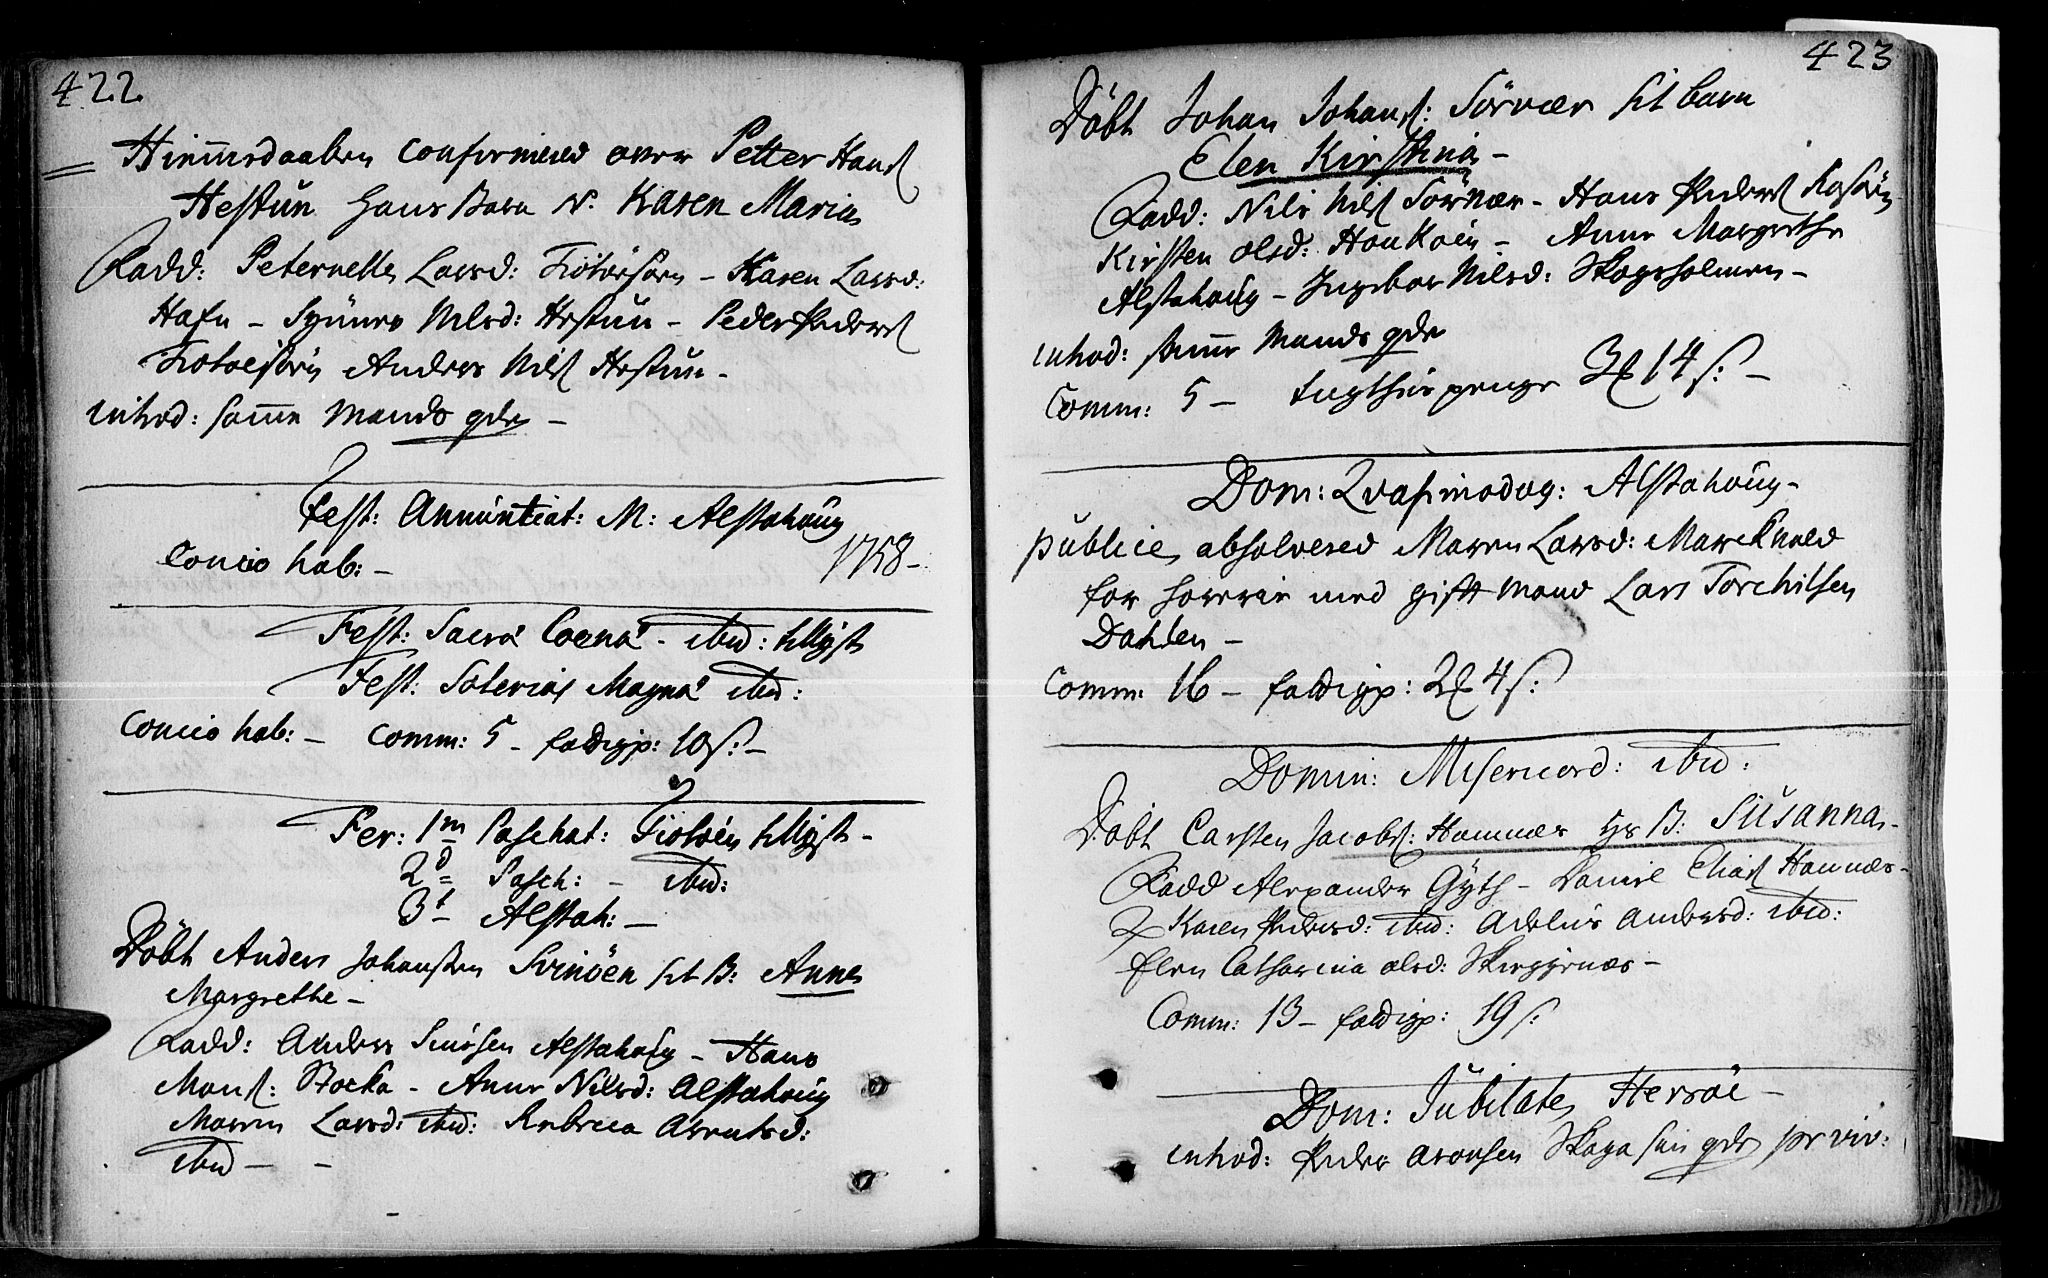 422.
Himmsdaaben confirmered over Petter Hans
Hestun hans Barn N. Karen Maria
Fadd: Peternelle Larsd: Tiøtøesøen - Karen Larsd:
Hafn - Synnev Nilsd: Hestun - Peder Peders
Tiotøesøen Anders Nils Hestun -
introd: samme Mands qde -
Fest: Annuntiat: M: Alstahoug
Concio hab: - 1758 -
Fest: Sacra Coena - ibid: 
Fest: Soteria Magna ibid:
Concio hab: - Comm: 5 - fattigp: 10 s: -
Fer: 1m Paschat: Tiøtøen
2d Pasch: - ibid:
3t Alstah: -
Döbt Anders Johansen Svinöen sit B: Anne
Margrethe -
Fadd: Anders Alstahoug - Hans
Mons: Stocka - Anne Nilsd: Alstahoug
Maren Larsd: ibid: Rebecca Arentsd:
ibid - -
423
Döbt Johan Johans: Sörvær sit barn
Elen Kirstina -
Fadd: Nils Nils Sörvær - Hans Peders Rosöen
Kirsten Olsd: Haukøen - Anne Margrethe
Alstahoug - Ingebor Nilsd: Skogsholmen -
introd: samme Mands qde
Comm: 5 - tugthus penge 14 s: -
Dom: Qvasimodog: Alstahoug -
publice absolvered Maren Larsd: Marckvold
for horerie med gift Mand Lars Torchilsen
Dahlen -
Comm: 16 - fattigp: 4 s:
Domin: Misericord: ibid:
Döbt Carsten Jacobs: Hamnæs hs B: Susanna -
Fadd Alexander Gyth - Daniel Elias Hamnæs -
Karen Pedersd: ibid: Adelus Andersd: ibid:
Elen Catharina Olsd: Skeggenæs -
Comm: 13 - fattigp: 19 s:
Dom: Jubilate, Herröe -
introd: Peder Aronsen Skaga sin qde pr viv: